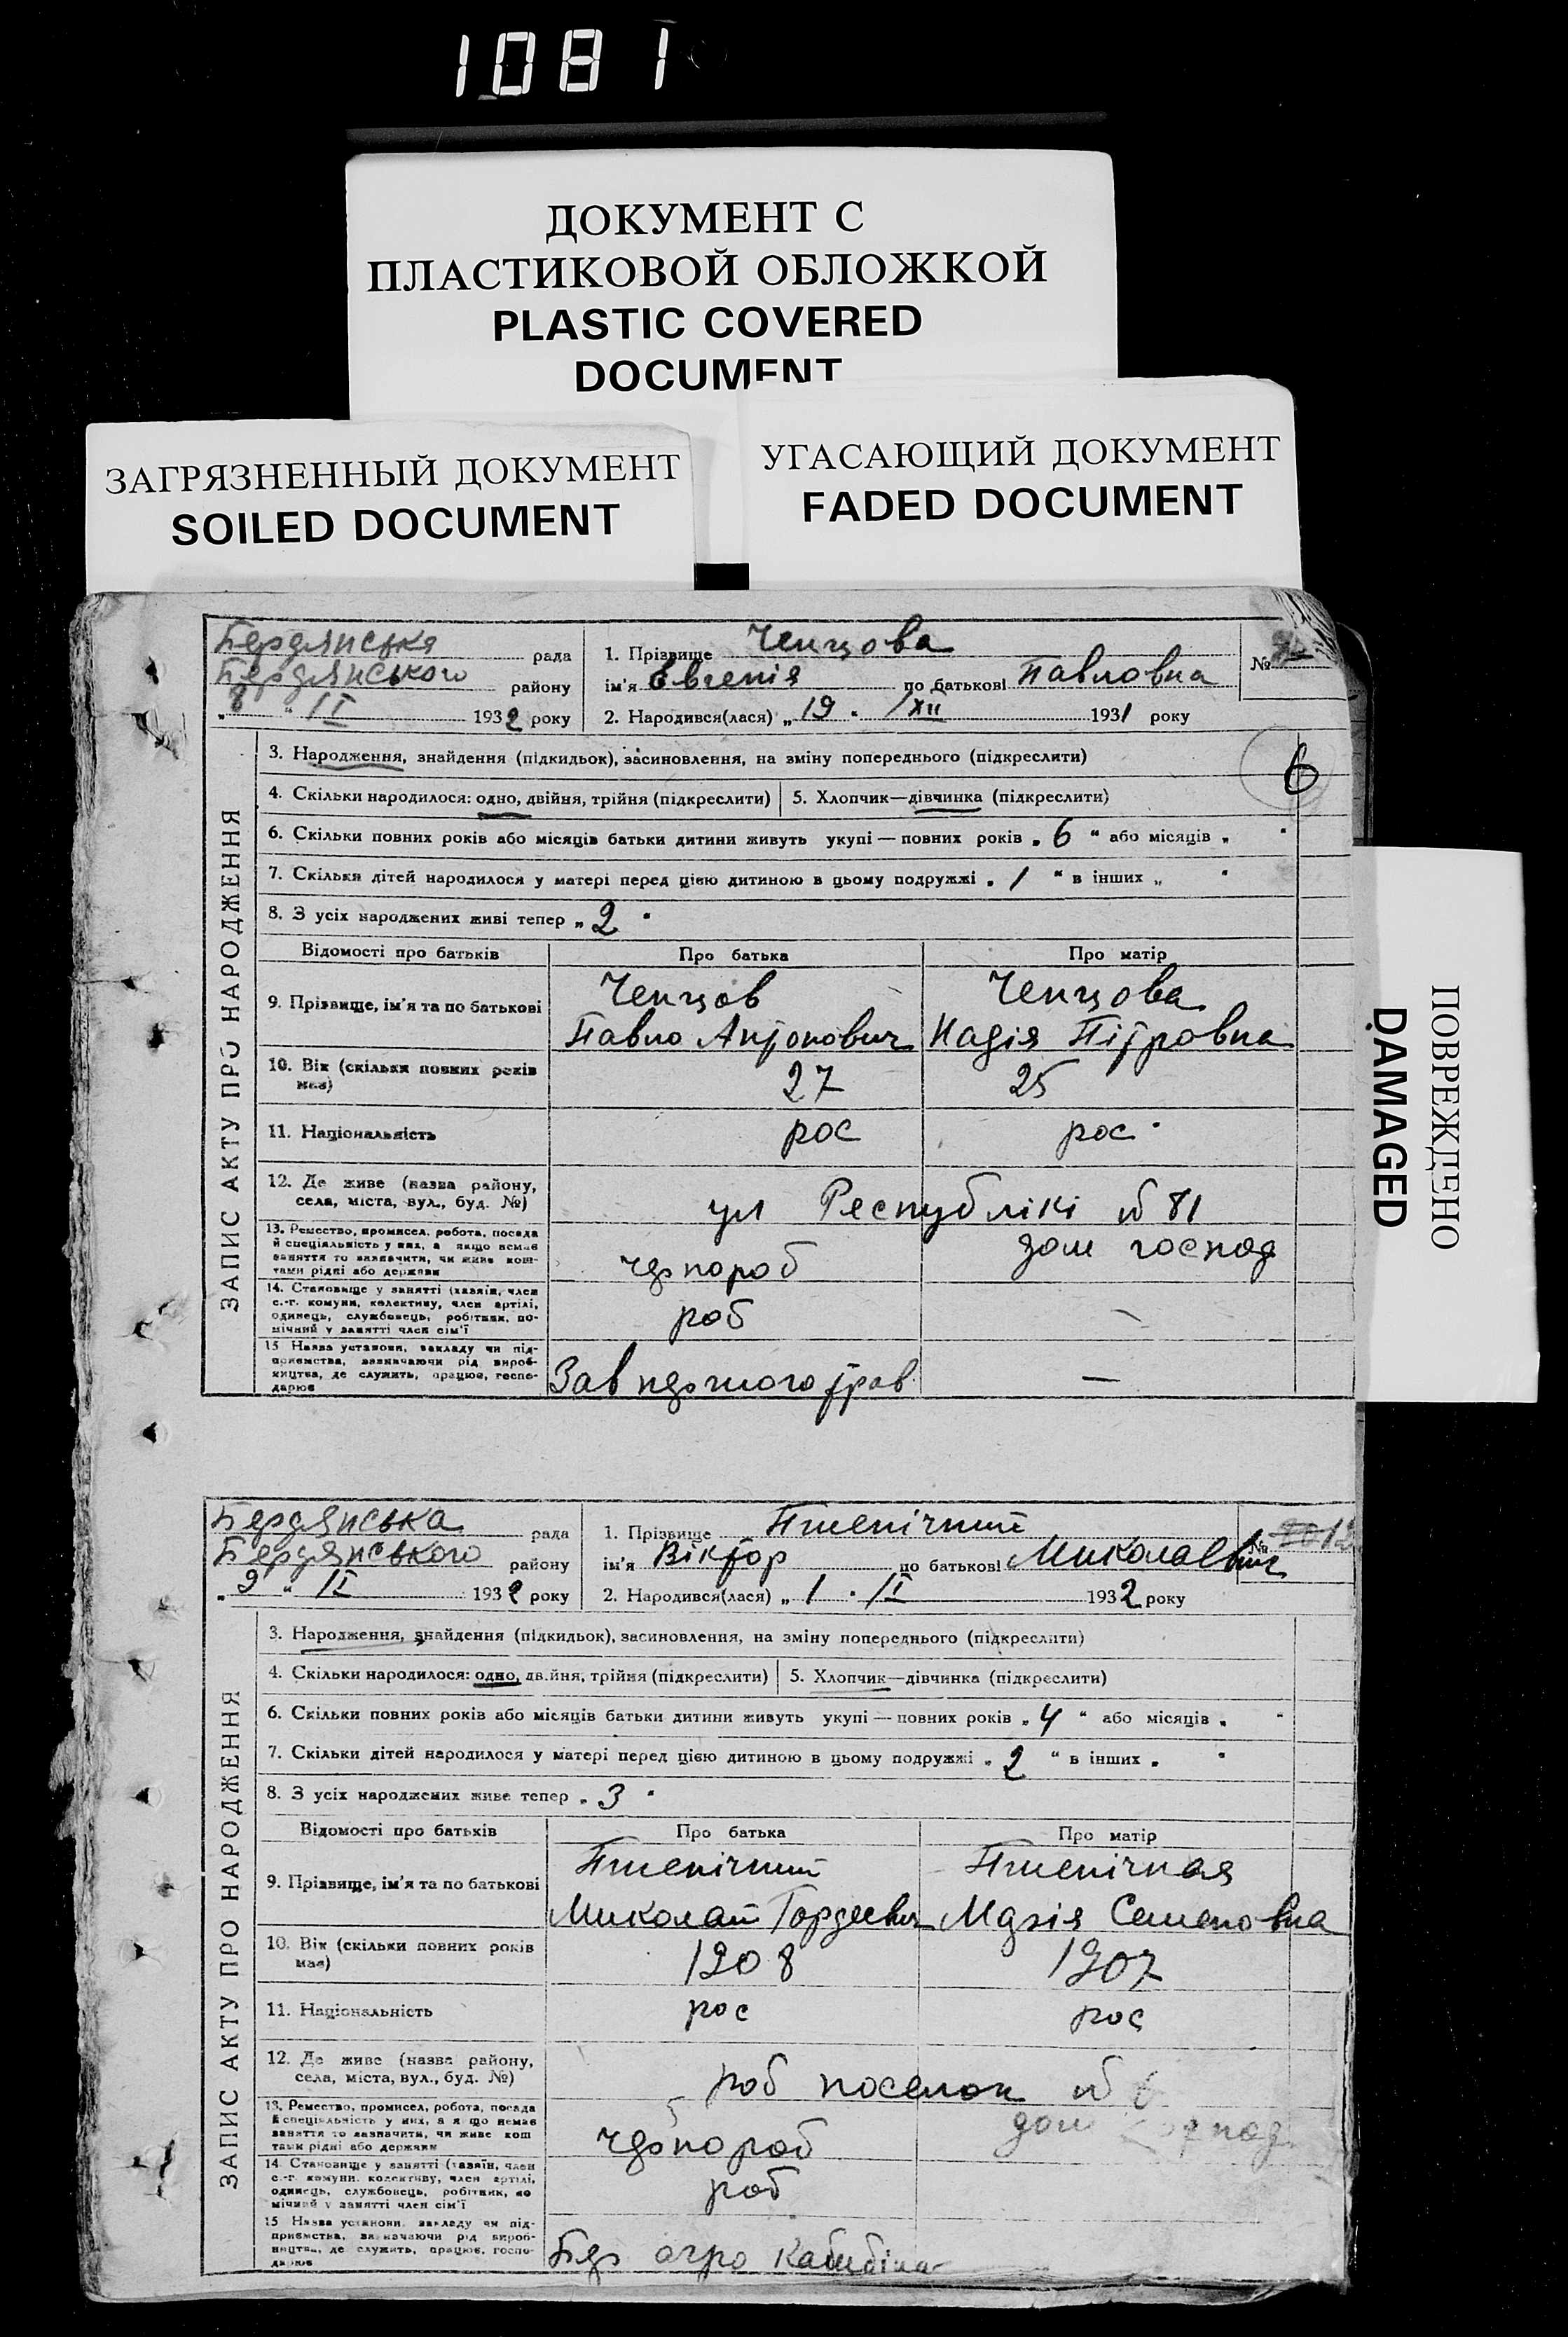 1081
ДОКУМЕНТ С
ПЛАСТИКОВОЙ ОБЛОЖКОЙ
PLASTIC COVERED
DOCUMENT
ЗАГРЯЗНЕННЫЙ ДОКУМЕНТ
SOILED DOCUMENT
УГАСАЮЩИЙ ДОКУМЕНТ
FADED DOCUMENT
ПОВРЕЖДЕНО
DAMAGED
ЗАПИС АКТУ ПРО НАРОДЖЕННЯ
Бердянська рада
Бердянського району
„8“ II 1932 року
1. Прізвище Ченцова
ім'я Євгенія по батькові Павловна
№
2. Народився(лася) „19“ XII 1931 року
6
3. Народження, знайдення (підкидьок), засиновлення, на зміну попереднього (підкреслити)
4. Скільки народилося: одно, двійня, трійня (підкреслити) 5. Хлопчик—дівчинка (підкреслити)
6. Скільки повних років або місяців батьки дитини живуть укупі — повних років „6“ або місяців „ “
7. Скільки дітей народилося у матері перед цією дитиною в цьому подружжі „1“ в інших „ “
8. З усіх народжених живі тепер „2“
Відомості про батьків Про батька Про матір
9. Прізвище, ім'я та по батькові
Ченцов
Павло Антонович
Ченцова
Надія Пітровна
10. Вік (скільки повних років має) 27 25
11. Національність рос рос.
12. Де живе (назва району,
села, міста, вул., буд. №)
ул Республікі № 81
13. Ремество, промисел, робота, посада
й спеціяльність у них, а якщо немає
заняття то зазначити, чи живе кош-
тами рідні або держави
чорнороб
дом господ
14. Становище у занятті (хазяїн, член
с.-г. комуни, колективу, член артілі,
одинець, службовець, робітник, по-
мічний у занятті член сім'ї
роб —
15 Назва установи, закладу чи під-
приємства, зазначаючи рід вироб-
ництва, де служить, працює, госпо-
дарює
Зав —
ЗАПИС АКТУ ПРО НАРОДЖЕННЯ
Бердянська рада
Бердянського району
„9“ II 1932 року
1. Прізвище Пшенічний
ім'я Віктор по батькові Миколаевич
№
2. Народився(лася) „1“ II 1932 року
3. Народження, знайдення (підкидьок), засиновлення, на зміну попереднього (підкреслити)
4. Скільки народилося: одно, двійня, трійня (підкреслити) 5. Хлопчик—дівчинка (підкреслити)
6. Скільки повних років або місяців батьки дитини живуть укупі — повних років „4“ або місяців „ “
7. Скільки дітей народилося у матері перед цією дитиною в цьому подружжі „2“ в інших „ “
8. З усіх народжених живе тепер „3“
Відомості про батьків Про батька Про матір
9. Прізвище, ім'я та по батькові
Пшенічний
Миколай Гордеевич
Пшенічная
Марія Семеновна
10. Вік (скільки повних років має) 1908 1907
11. Національність рос рос
12. Де живе (назва району,
села, міста, вул., буд. №)
роб поселок №
13. Ремество, промисел, робота, посада
й спеціяльність у них, а якщо немає
заняття то зазначити, чи живе кош
тами рідні або держави
чорнороб
дом господ
14. Становище у занятті (хазяїн, член
с.-г. комуни, колективу, член артілі,
одинець, службовець, робітник, по
мічний у занятті член сім'ї
роб
15 Назва установи, закладу чи під-
приємства, зазначаючи рід вироб-
ництва, де служить, працює, госпо-
дарює
агро